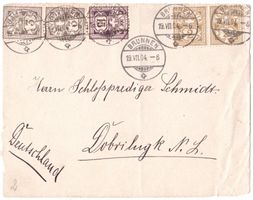 BRUNNEN
19.VII.04.-6
15
Herrn Schlossprediger Schmidt
Dobrilugk N. L.
Deutschland